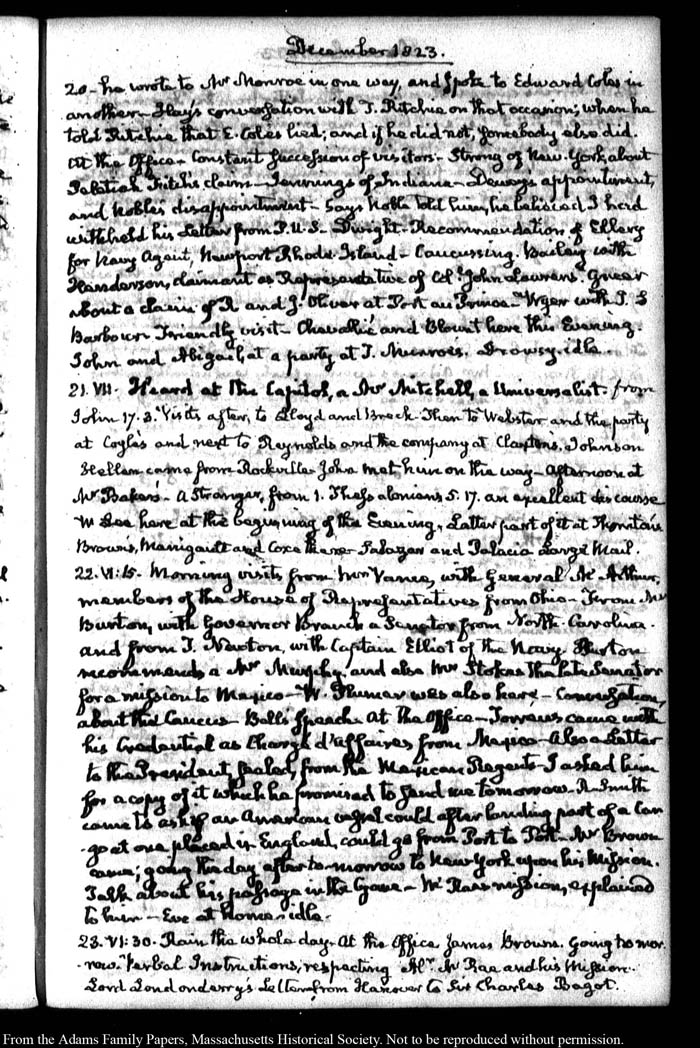 December 1823.
20 - he wrote to Mr Monroe in one way, and spoke to Edward Coles in
another - Hay's conversation with T. Ritchie on that occasion; when he
told Ritchie that E. Coles lied; and if he did not, somebody else did.
At the Office - Constant succession of visitors - Strong of New-York, about
claim - Jennings of Indiana - Dewey's appointment,
and Noble's disappointment - Says Noble told him, he believed I had
withheld his Letter from P.U.S. - Dwight - Recommendation of Ellery
for Navy Agent, Newport Rhode Island - Caucussing. Bailey with
Henderson, claimant as Representative of Col. John Laurens. Greer
about a claim of R and J. Oliver at Port au Prince - Wyer with J. S
Barbour. Friendly visit - Chevallié and Blount here this Evening.
John and Abigail, at a party at J. Monroe's. Drowsy idle.
21. VII. Heard at the Capitol, a Mr Mitchell, a Universalist. from
John 17. 3. Visits after, to Lloyd and Breck. Then to Webster and the party
at Coyle's and next to Reynolds and the company at Claxton's. Johnson
Hellen came from Rockville. John met him on the way - Afternoon at
Mr Baker's - A Stranger, from 1. Thessalonians 5. 17. an excellent discourse
W Lee here at the beginning of the Evening, Latter part of it at Thornton's
Brown's, Manigault and Coxe there - Salazar and Palacio Large Mail.
22. VI:15. Morning visits from Mr Vance, with General Mc Arthur,
members of the House of Representatives from Ohio -
Burton, with Governor Branch a Senator from North-Carolina.
and from T. Newton, with Captain Elliot of the Navy. Burton
recommends a Mr Murphy, and also Mr Stokes the late Senator
for a mission to Mexico - W. Plumer was also here - Conversation,
about the Caucus - Ball's Speech. At the Office - Torrens came with
his Credential as Chargé d'Affaires, from Mexico - Also a Letter
to the President, sealed, from the Mexican Regents - I asked him
for a copy of it which he promised to send me tomorrow. R. Smith
came to ask if an American vessel could after landing part of a Car
-go at one place in England, could go from Port to Port - Mr Brown
came; going the day after to-morrow to New York upon his Mission.
Talk about his passage in the Cyane - Mc Rae's mission, explained
to him - Eve at home. idle.
23. VI:30. Rain the whole day. At the Office James Brown. Going to mor
-row. Verbal Instructions, respecting Mc Rae and his Mission.
Lord Londonderry's Letter from Hanover to Sir Charles Bagot.
From the Adams Family Papers, Massachusetts Historical Society. Not to be reproduced without permission.